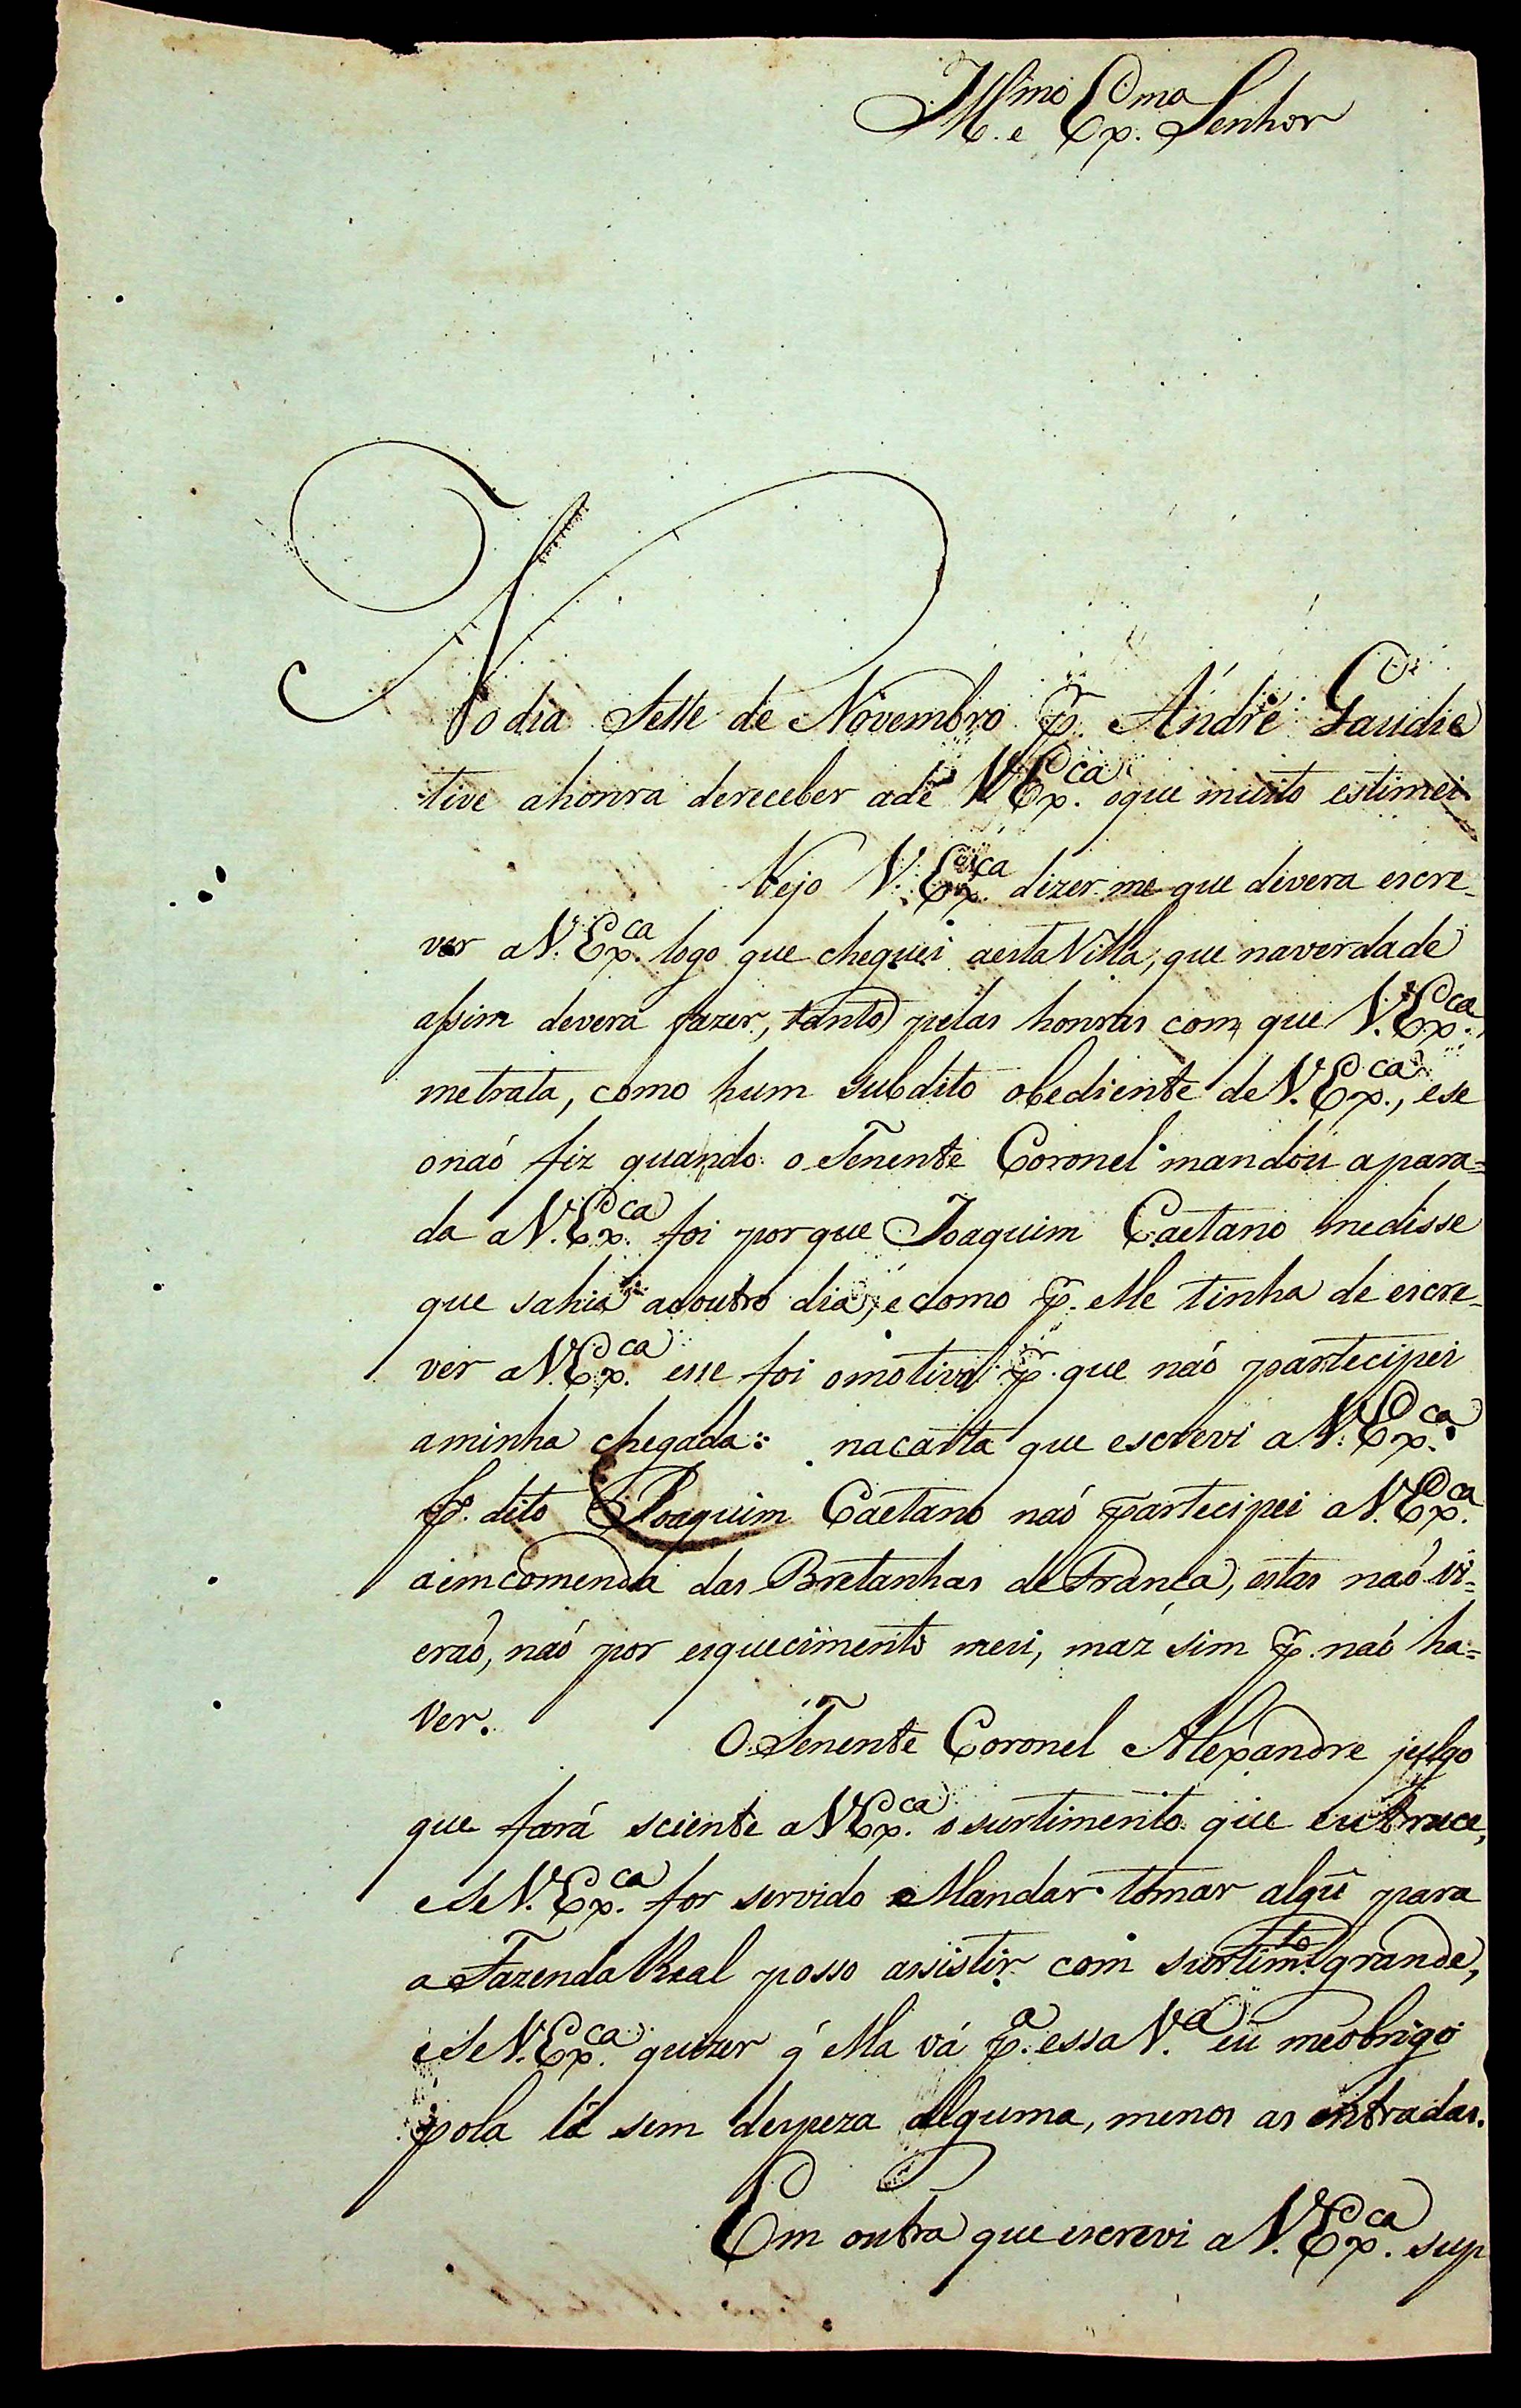 Ill.mo e Ex.mo Senhor
No dia sette de Novembro p.r André Gaudie
tive ahonra dereceber ade V.Ex.ca oque muito estimei
Vejo V.Ex.ca dizer me que divera escre-
ver aV.Ex.ca logo que cheguei aesta Villa, que naverdade
assim devera fazer, tanto pelas honras com que V.Ex.ca
metrata, como hum subdito obediente deV.Ex.ca, ese
onaó fiz quando o Tenente Coronel mandou apara=
da aV.Ex.ca foi porque Joaquim Caetano medisse
que sahia aooutro dia, e como p.r elle tinha de escre-
ver aV.Ex.ca esse foi omotivo p.r que naó partecipei
aminha chegada: nacarta que escrevi aV.Ex.ca
p.r dito Joaquim Caetano naó partecipei aV.Ex.ca
aemcomenda das Bretanhas deFrança, estas naó vi=
eraó, naó por esquecimento meu, maz sim p.r naó ha=
ver.
O Tenente Coronel Alexandre julgo
que fará sciente aV.Ex.ca osurtimento que eutruce,
eSeV.Ex.ca for servido Mandar tomar algũ para
aFazenda Real posso assistir com surtim.to grande,
eSeV.Ex.ca quizer q́ ella vá p.a essa V.a eu meobrigo
pola lá sem despeza alguma, menos as entradas.
Em outra que escrevi aV.Ex.ca sup